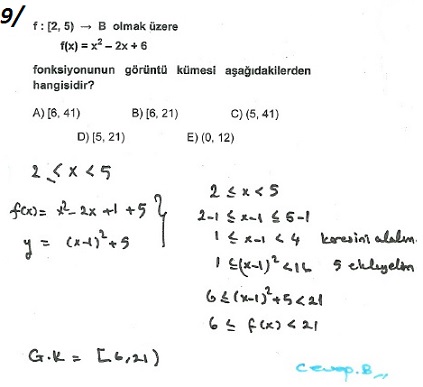 9/
f : [2, 5) → B olmak üzere
f(x) = x² – 2x + 6
fonksiyonunun görüntü kümesi aşağıdakilerden
hangisidir?
A) [6, 41) B) [6, 21) C) (5, 41)
D) [5, 21) E) (0, 12)
2 ≤ x < 5
f(x) = x² - 2x + 1 + 5
y = (x-1)² + 5
2 ≤ x < 5
2-1 ≤ x-1 ≤ 5-1
1 ≤ x-1 < 4 karesini alalım.
1 ≤ (x-1)² < 16 5 ekleyelim
6 ≤ (x-1)² + 5 < 21
6 ≤ f(x) < 21
G.K = [6, 21)
Cevap.B